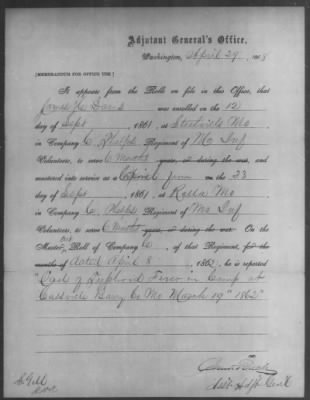 Adjutant General's Office,
Washington, April 29, 186
[MEMORANDUM FOR OFFICE USE.]
It appears from the Rolls on file in this Office, that
Davis was enrolled on the 12
day of Sept 1861, at Steelville Mo
in Company C, Phelps Regiment of Mo Inf
Volunteers, to serve 6 Months years, or during the war, and
mustered into service as a Corporal on the 23
day of Sept 1861, at Rolla Mo
in Company C, Phelps Regiment of Mo Inf
Volunteers, to serve 6 Months years, or during the war. On the
Muster Out Roll of Company C, of that Regiment, for the
months of dated April 8, 1862, he is reported
"Died of Typhoid Fever in Camp at
Cassville Barry Co Mo March 19" 1862"
Asst Adjt Genl